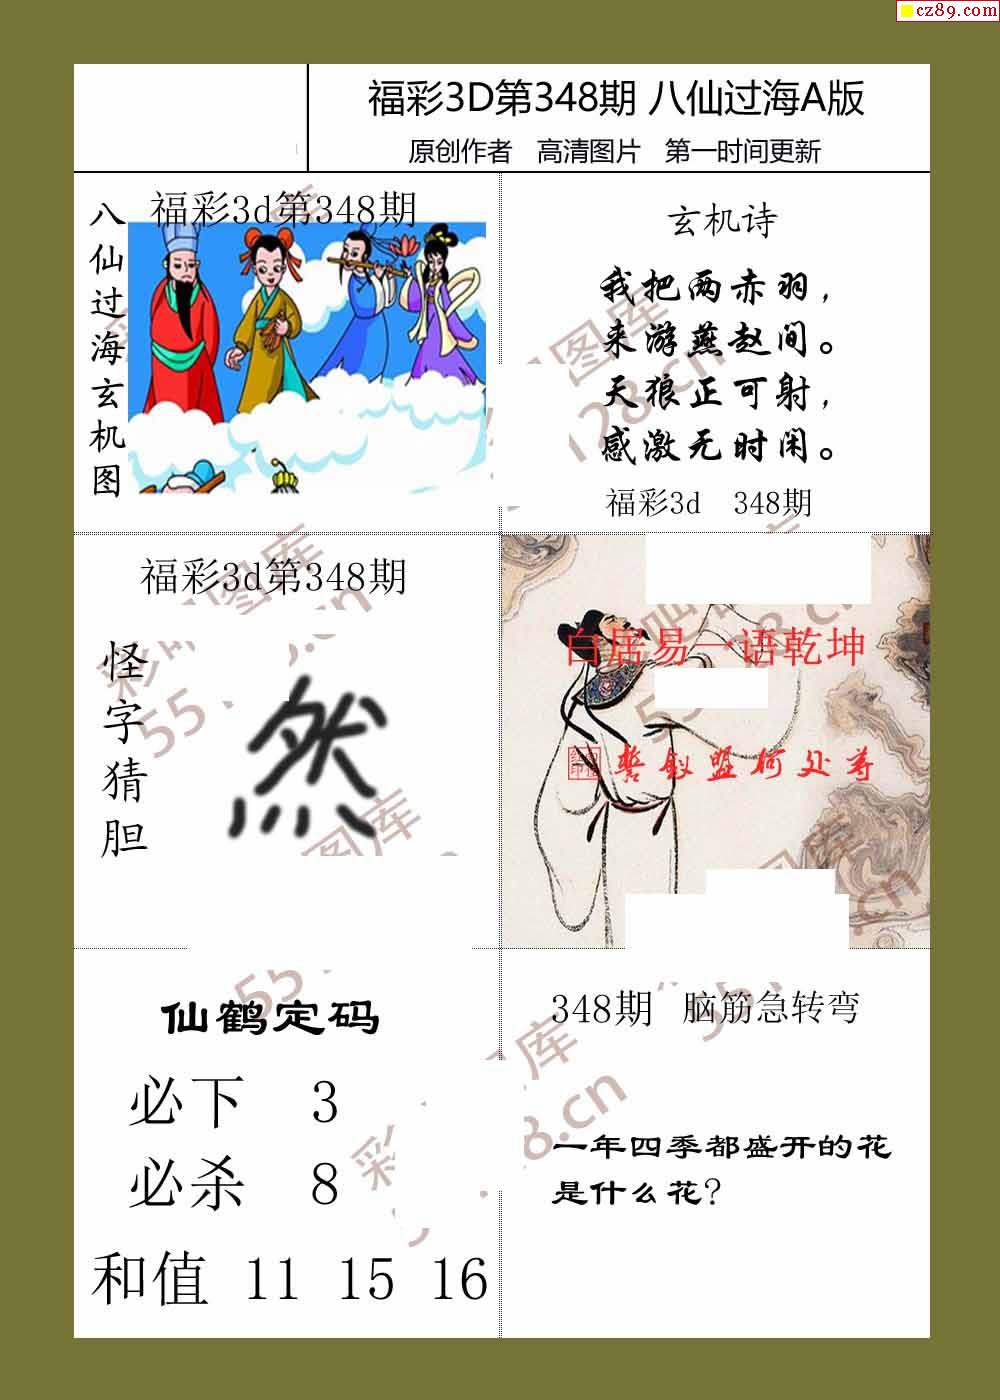 cz89.com
福彩3D第348期 八仙过海A版
原创作者 高清图片 第一时间更新
福彩3d第348期
八仙过海玄机图
玄机诗
我把两赤羽，
来游燕赵间。
天狼正可射，
感激无时闲。
福彩3d 348期
福彩3d第348期
怪字猜胆
然
白居易一语乾坤
钗盟何处尊
仙鹤定码
必下 3
必杀 8
和值 11 15 16
348期 脑筋急转弯
一年四季都盛开的花
是什么花?